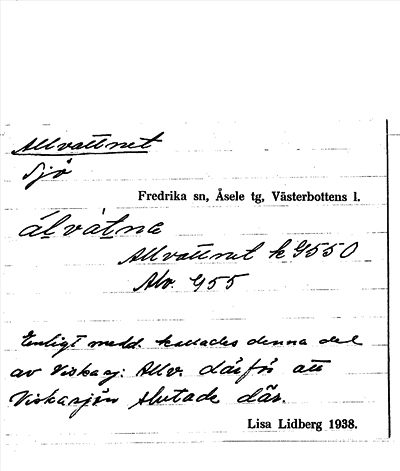 Allvattnet
Sjö
Fredrika sn, Åsele tg, Västerbottens l.
álvàtnα
Allvattnet k 9550
Alv. 955
Enligt medd. kallades denna del
av Viskasj: Allv. därför att
Viskasjön slutade där.
Lisa Lidberg 1938.